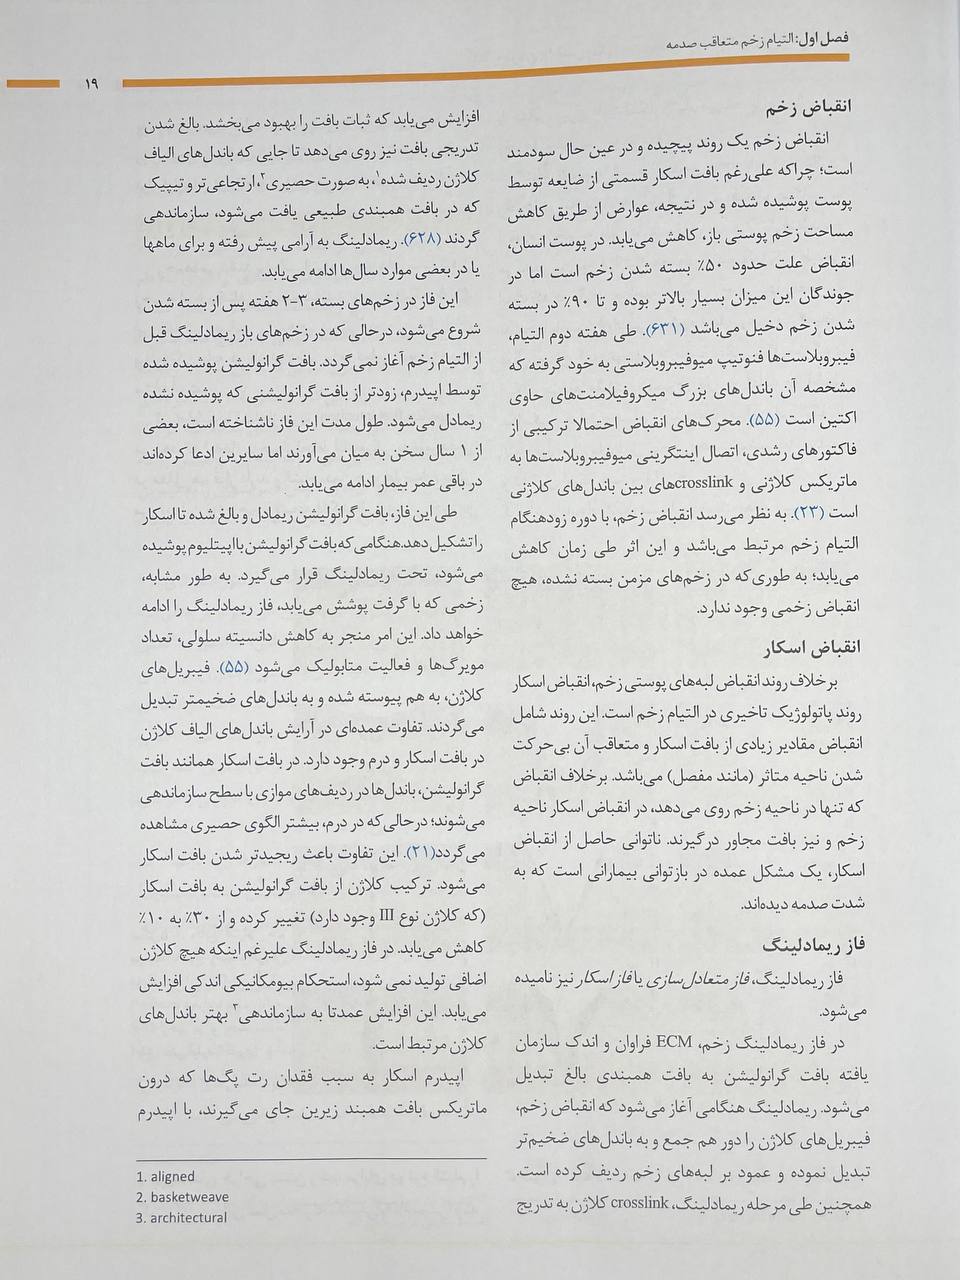 فصل اول: التیام زخم متعاقب صدمه
۱۹
انقباض زخم
انقباض زخم یک روند پیچیده و در عین حال سودمند
است؛ چراکه علی‌رغم بافت اسکار قسمتی از ضایعه توسط
پوست پوشیده شده و در نتیجه، عوارض از طریق کاهش
مساحت زخم پوستی باز، کاهش می‌یابد. در پوست انسان،
انقباض علت حدود ۵۰٪ بسته شدن زخم است اما در
جوندگان این میزان بسیار بالاتر بوده و تا ۹۰٪ در بسته
شدن زخم دخیل می‌باشد (۶۳۱). طی هفته دوم التیام،
فیبروبلاست‌ها فنوتیپ میوفیبروبلاستی به خود گرفته که
مشخصه آن باندل‌های بزرگ میکروفیلامنت‌های حاوی
اکتین است (۵۵). محرک‌های انقباض احتمالا ترکیبی از
فاکتورهای رشدی، اتصال اینتگرینی میوفیبروبلاست‌ها به
ماتریکس کلاژنی و crosslinkهای بین باندل‌های کلاژنی
است (۲۳). به نظر می‌رسد انقباض زخم، با دوره زودهنگام
التیام زخم مرتبط می‌باشد و این اثر طی زمان کاهش
می‌یابد؛ به طوری‌که در زخم‌های مزمن بسته نشده، هیچ
انقباض زخمی وجود ندارد.
انقباض اسکار
برخلاف روند انقباض لبه‌های پوستی زخم، انقباض اسکار
روند پاتولوژیک تاخیری در التیام زخم است. این روند شامل
انقباض مقادیر زیادی از بافت اسکار و متعاقب آن بی‌حرکت
شدن ناحیه متاثر (مانند مفصل) می‌باشد. برخلاف انقباض
که تنها در ناحیه زخم روی می‌دهد، در انقباض اسکار ناحیه
زخم و نیز بافت مجاور درگیرند. ناتوانی حاصل از انقباض
اسکار، یک مشکل عمده در بازتوانی بیمارانی است که به
شدت صدمه دیده‌اند.
فاز ریمادلینگ
فاز ریمادلینگ، فاز متعادل‌سازی یا فاز اسکار نیز نامیده
می‌شود.
در فاز ریمادلینگ زخم، ECM فراوان و اندک سازمان
یافته بافت گرانولیشن به بافت همبندی بالغ تبدیل
می‌شود. ریمادلینگ هنگامی آغاز می‌شود که انقباض زخم،
فیبریل‌های کلاژن را دور هم جمع و به باندل‌های ضخیم‌تر
تبدیل نموده و عمود بر لبه‌های زخم ردیف کرده است.
همچنین طی مرحله ریمادلینگ، crosslink کلاژن به تدریج
افزایش می‌یابد که ثبات بافت را بهبود می‌بخشد. بالغ شدن
تدریجی بافت نیز روی می‌دهد تا جایی که باندل‌های الیاف
کلاژن ردیف شده۱، به صورت حصیری۲، ارتجاعی‌تر و تیپیک
که در بافت همبندی طبیعی یافت می‌شود، سازماندهی
گردند (۶۲۸). ریمادلینگ به آرامی پیش رفته و برای ماهها
یا در بعضی موارد سال‌ها ادامه می‌یابد.
این فاز در زخم‌های بسته، ۳-۲ هفته پس از بسته شدن
شروع می‌شود، درحالی که در زخم‌های باز ریمادلینگ قبل
از التیام زخم آغاز نمی‌گردد. بافت گرانولیشن پوشیده شده
توسط اپیدرم، زودتر از بافت گرانولیشنی که پوشیده نشده
ریمادل می‌شود. طول مدت این فاز ناشناخته است، بعضی
از ۱ سال سخن به میان می‌آورند اما سایرین ادعا کرده‌اند
در باقی عمر بیمار ادامه می‌یابد.
طی این فاز، بافت گرانولیشن ریمادل و بالغ شده تا اسکار
را تشکیل دهد. هنگامی که بافت گرانولیشن با اپیتلیوم پوشیده
می‌شود، تحت ریمادلینگ قرار می‌گیرد. به طور مشابه،
زخمی که با گرفت پوشش می‌یابد، فاز ریمادلینگ را ادامه
خواهد داد. این امر منجر به کاهش دانسیته سلولی، تعداد
مویرگ‌ها و فعالیت متابولیک می‌شود (۵۵). فیبریل‌های
کلاژن، به هم پیوسته شده و به باندل‌های ضخیمتر تبدیل
می‌گردند. تفاوت عمده‌ای در آرایش باندل‌های الیاف کلاژن
در بافت اسکار و درم وجود دارد. در بافت اسکار همانند بافت
گرانولیشن، باندل‌ها در ردیف‌های موازی با سطح سازماندهی
می‌شوند؛ درحالی که در درم، بیشتر الگوی حصیری مشاهده
می‌گردد(۲۱). این تفاوت باعث ریجیدتر شدن بافت اسکار
می‌شود. ترکیب کلاژن از بافت گرانولیشن به بافت اسکار
(که کلاژن نوع III وجود دارد) تغییر کرده و از ۳۰٪ به ۱۰٪
کاهش می‌یابد. در فاز ریمادلینگ علیرغم اینکه هیچ کلاژن
اضافی تولید نمی شود، استحکام بیومکانیکی اندکی افزایش
می‌یابد. این افزایش عمدتا به سازماندهی۳ بهتر باندل‌های
کلاژن مرتبط است.
اپیدرم اسکار به سبب فقدان رت پگ‌ها که درون
ماتریکس بافت همبند زیرین جای می‌گیرند، با اپیدرم
1. aligned
2. basketweave
3. architectural